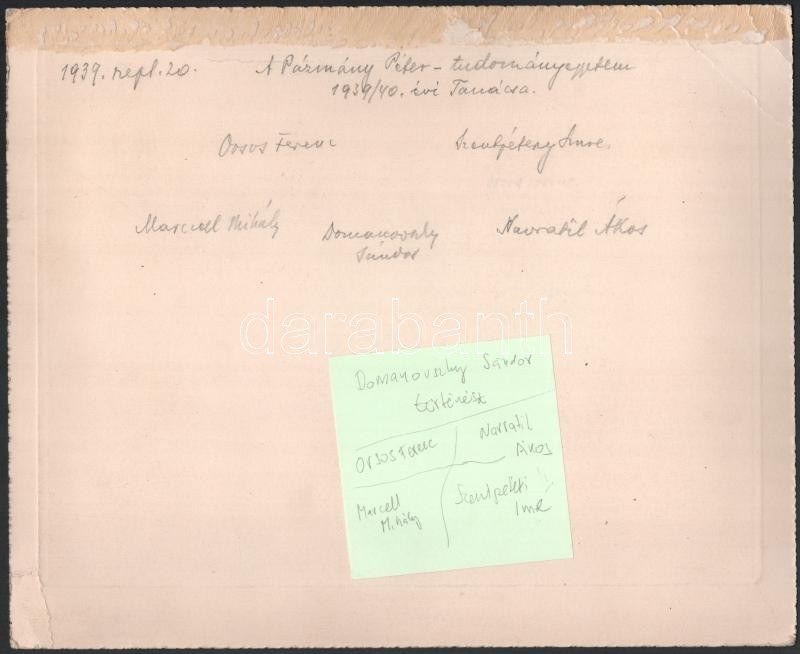 1939. szept. 20. A Pázmány Péter - tudományegyetem
1939/40. évi Tanácsa.
Orsos Ferenc Szentpétery Imre.
Marcell Mihály Domanovszky Navratil Ákos
Sándor
darabanth
Domanovszky Sándor
történész
Orsos Ferenc Navratil
Ákos
Marcell Szentpéteri
Mihály Imre